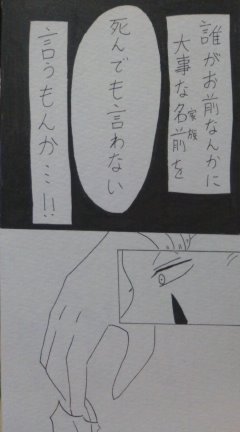 誰がお前なんかに
大事な名前を
家族
死んでも言わない
言うもんか…!!